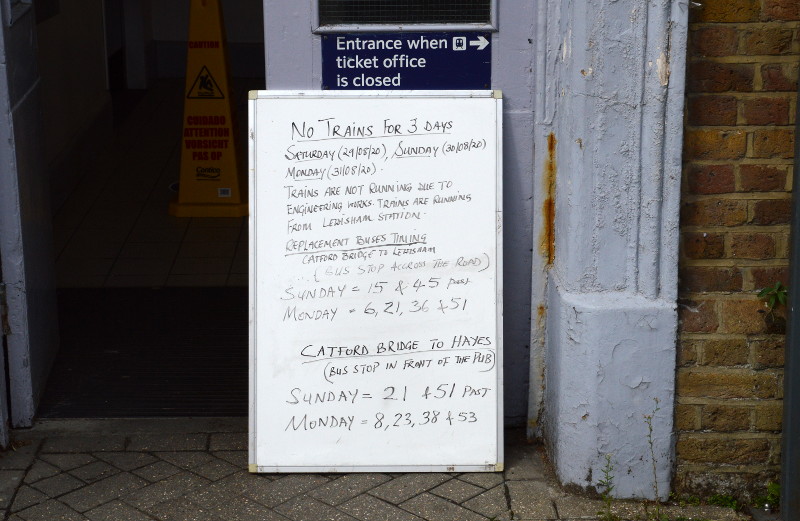 Entrance when
ticket office
is closed
CAUTION
CUIDADO
ATTENTION
VORSICHT
PAS OP
NO TRAINS FOR 3 DAYS
SATURDAY (29/08/20), SUNDAY (30/08/20)
MONDAY (31/08/20).
TRAINS ARE NOT RUNNING DUE TO
ENGINEERING WORKS. TRAINS ARE RUNNING
FROM LEWISHAM STATION.
REPLACEMENT BUSES TIMING
CATFORD BRIDGE TO LEWISHAM
(BUS STOP ACCROSS THE ROAD)
SUNDAY = 15 & 45 PAST
MONDAY = 6, 21, 36 & 51
CATFORD BRIDGE TO HAYES
(BUS STOP IN FRONT OF THE PUB)
SUNDAY = 21 & 51 PAST
MONDAY = 8, 23, 38 & 53